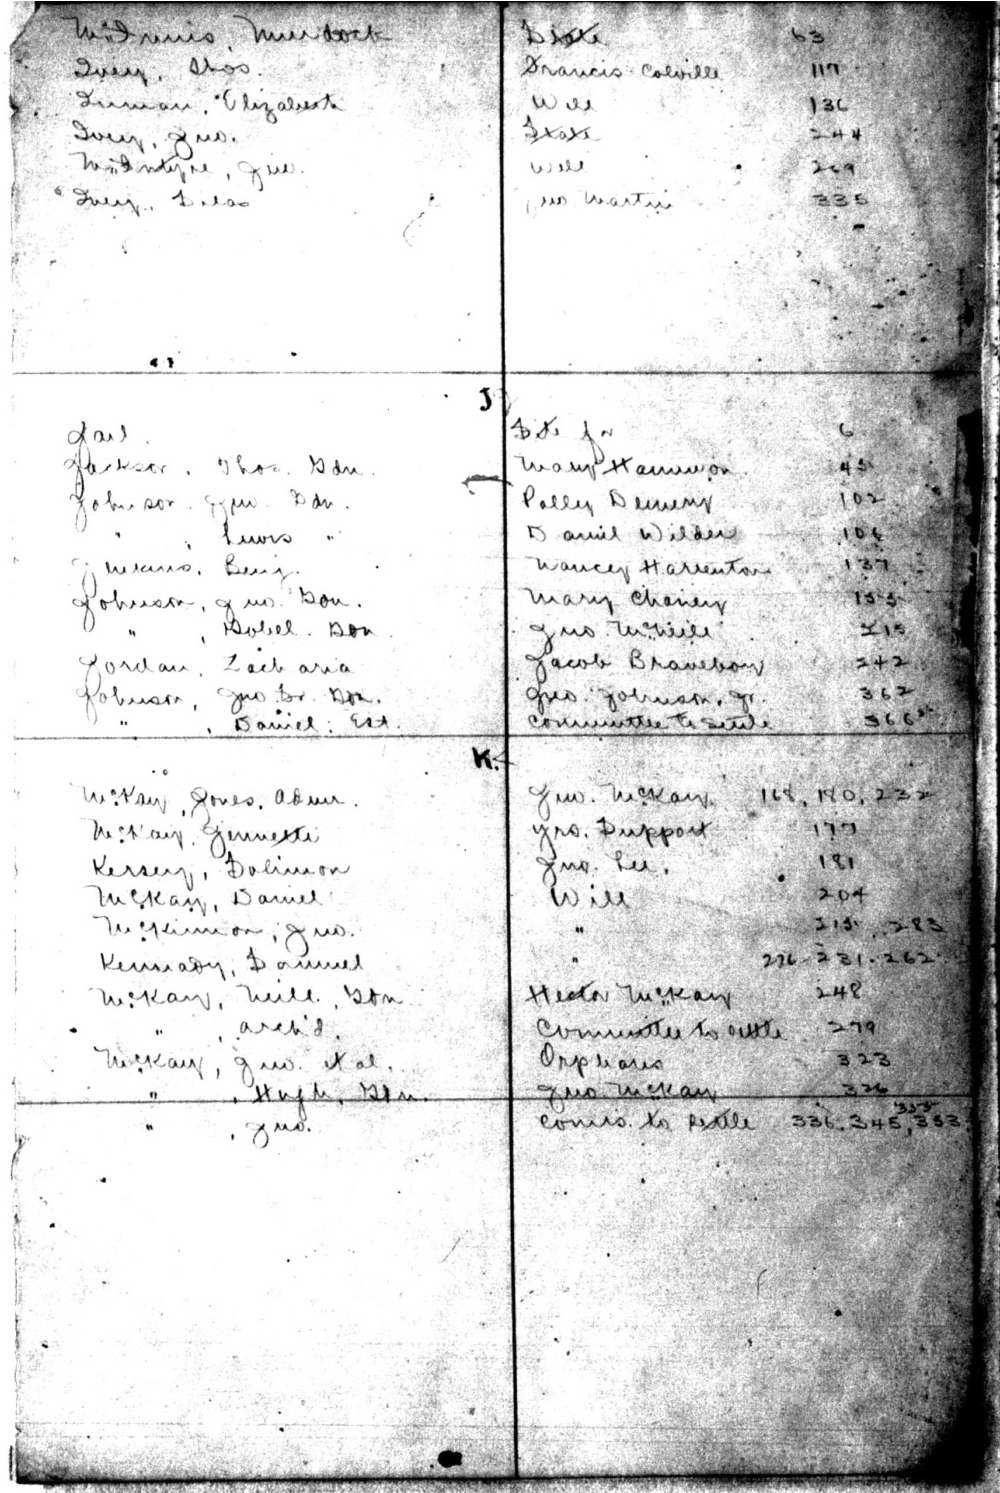 McInnis, Murdock State 63
Ivey, Thos. Francis Colville 117
Inman, Elizabeth Will 136
Ivey, Jno. State 244
McIntyre, Jno. Will 269
Ivey, Silas Jno Martin 335
J
Jail. Site for 6
Jackson, Thos. Gdn. Mary Hammon 45
Johnson, Jno. Gdn. Polley Demery 102
" , Lewis " Daniel Wilder 106
Jenkins, Benj. Nancy Harrenton 137
Johnson, Jno. Gdn. Mary Chaney 155
" , Gdn Jno. McNeill 215
Jordan, Zacharia Jacob Braveboy 242
Johnson, Jno Sr. Gdn. Jno. Johnson, Jr. 362
" , Daniel. Est. Committee to settle 366
K.
McKay, Jones, Admr. Jno. McKay 168, 180, 232
McKay, Jennette yrs. Support 177
Kersey, Solimon Jno. Lee. 181
McKay, Daniel Will 204
McKinnon, Jno. " 215, 283
Kennady, Samuel " 226. 231. 262
McKay, Neill, Gdn Hector McKay 248
" , Arch'd. Committee to settle 279
McKay, Jno. et al. Orphans 323
" , Hugh, Gdn. Jno. McKay 326
" , Jno. Comrs. to settle 336, 345, 353